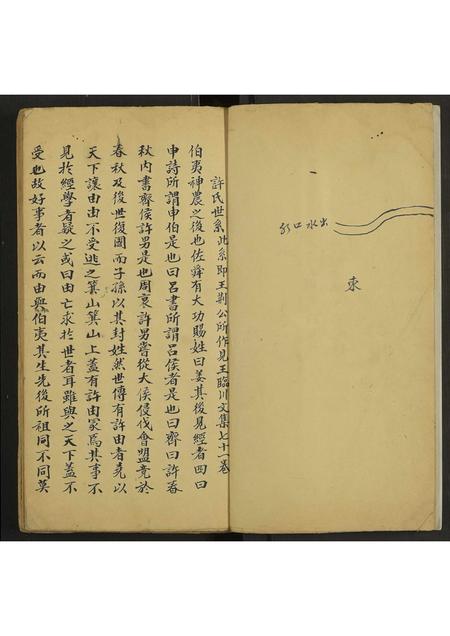 东
出水口仍
許氏世系此系即王荆公所作見王臨川文集七十一卷
伯夷神農之後也佐舜有大功賜姓曰姜其後見經者四曰
申詩所謂申伯是也曰呂書所謂呂侯者是也曰齊曰許春
秋内書齊侯許男是也周衰許男嘗從大侯侵伐會盟竟於
春秋及後世復國而子孫以其封姓然世傳有許由者堯以
天下讓由由不受逃之箕山箕山上蓋有許由冢焉其事不
見於經學者疑之或曰由亡求於世者耳雖與之天下蓋不
受也故好事者以云而由與伯夷其生先後所祖同不同莫